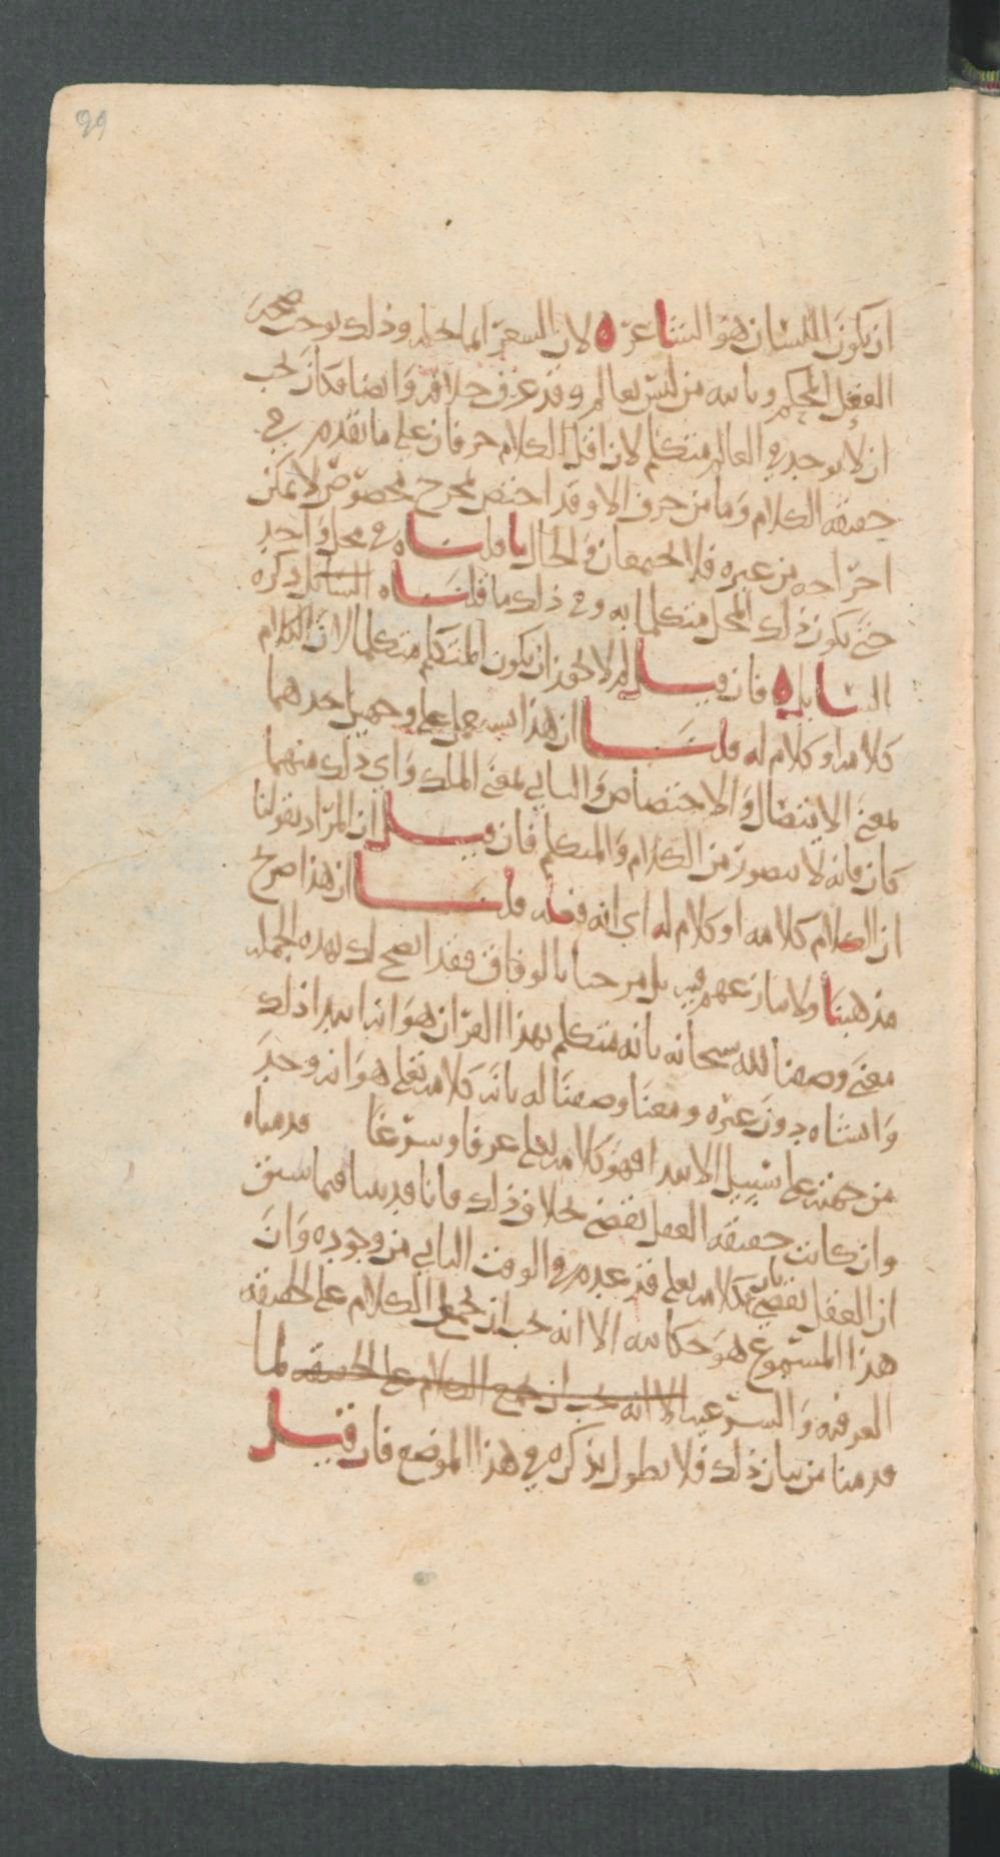 99
ان يكون اللسان هو الشاعر ه لان الشعر انما حله وذلك يوجب صحة
الفعل المحكم وبابه من ليس بعالم وقد عرف خلافه وايضا فكان يجب
ان لا يوجد في العالم متكلم لان اقل الكلام حرفان على ما تقدم في
حقيقة الكلام وما من حرف الا وقد اختص بمخرج مخصوص لا يمكن
اخراجه من غيره فلا يجتمعان والحال ما قلناه في محل واحد
حتى يكون ذلك المحل متكلما به وفي ذلك ما قلناه السائل ذكره
السائل ه فان قيل لم لا يجوز ان يكون المتكلم متكلما لان الكلام
كلامه او كلام له قلنا ان هذا يستعمل على وجهين احدهما
بمعنى الاتصال والاختصاص والثاني بمعنى الملك واي ذلك منهما
كان فانه لا يتصور من الكلام والمتكلم فان قيل ان المراد بقولنا
ان الكلام كلامه او كلام له اي انه فعله قلنا ان هذا صريح
مذهبنا ولا منازعهم فيه بل مرحبا بالوفاق فقد اتضح لك بهذه الجملة
معنى وصفنا لله سبحانه بانه متكلم بهذا القران هو انه ابتدا ذلك
وانشاه دون غيره ومعنا وصفنا له بانه كلامه تعلى هو انه وجد
من جهته على سبيل الابتدا فهو كلامه تعلى عرفا وشرعا قدمناه
وان كانت حقيقة العقل تقضي بخلاف ذلك فانا قد بينا فيما سبق
ان العقل يقضي بان كلامه تعلى قد عدم في الوقت الثاني من وجوده وان
هذا المسموع هو حكايته الا انه يجب ان يحمل الكلام على الحقيقة
العرفية والشرعية الا انه يجب ان يحمل الكلام على الحقيقة لما
قدمنا من بيان ذلك فلا نطول بذكره في هذا الموضع فان قيل